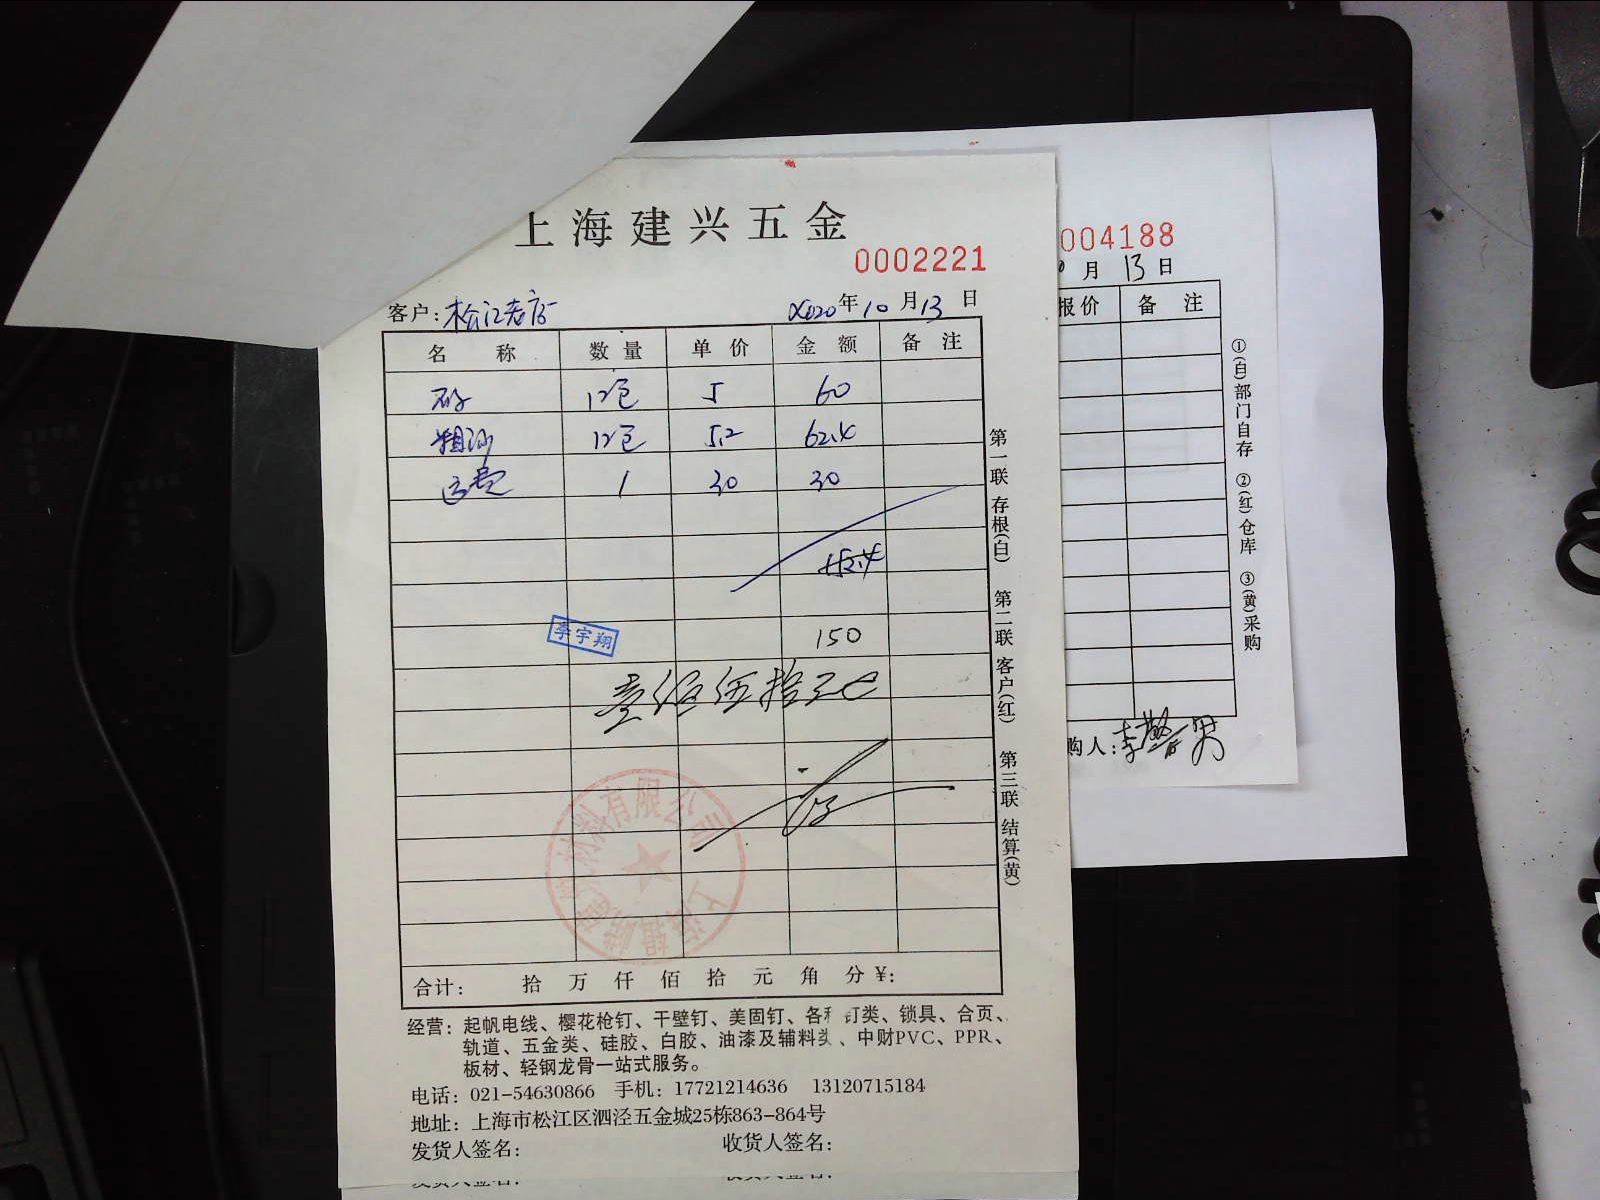 上海建兴五金
0002221
客户：松江老店 2020年10月13日
名称 数量 单价 金额 备注
砂 12包 5 60
粗沙 12包 5.2 62.4
运费 1 30 30
152.4
李宇翔
150
壹佰伍拾元
合计： 拾 万 仟 佰 拾 元 角 分 ¥：
经营：起帆电线、樱花枪钉、干壁钉、美固钉、各 钉类、锁具、合页、
轨道、五金类、硅胶、白胶、油漆及辅料类、中财PVC、PPR、
板材、轻钢龙骨一站式服务。
电话：021-54630866 手机：17721214636 13120715184
地址：上海市松江区泗泾五金城25栋863-864号
发货人签名： 收货人签名：
第一联 存根(白) 第二联 客户(红) 第三联 结算(黄)
材料有限公司
004188
月 13日
报价 备注
①(白)部门自存 ②(红)仓库 ③(黄)采购
购人：李